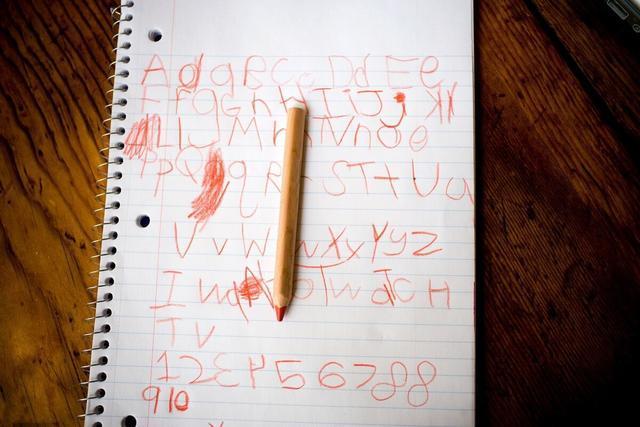 A d a B C c D d E e
F f g G h I i J j K k
L l M m N n O o
P p Q q R S T t U u
V v W w X x Y y z
I wa to watch
TV
1 2 3 4 5 6 7 8 8
9 10